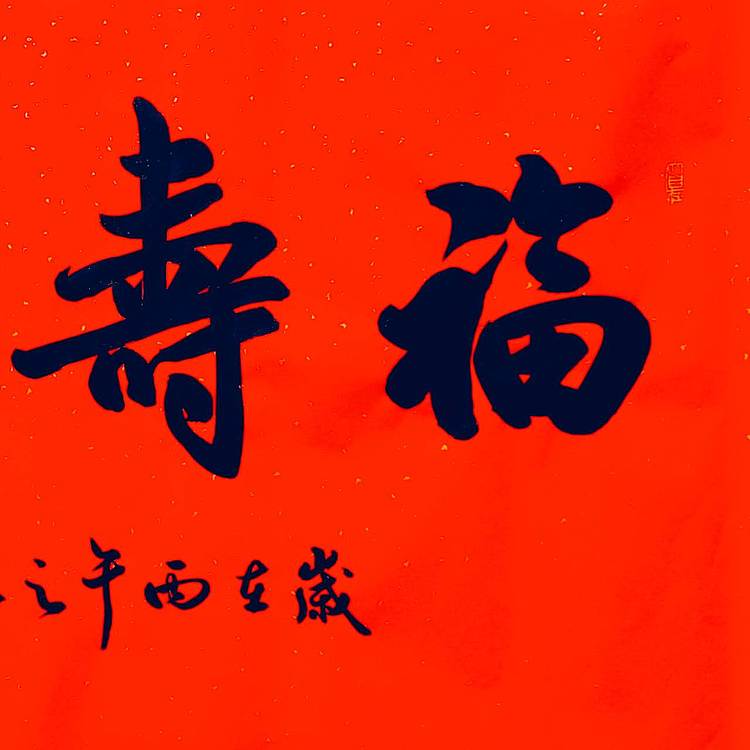 福壽
歲在丙午之